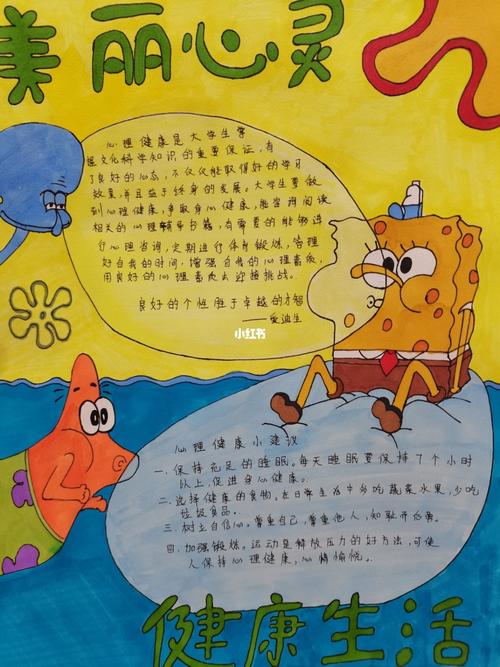 美丽心灵
心理健康是大学生掌
握文化科学知识的重要保证,有
了良好的心态,不仅仅能取得好的学习
效果,并且益于终身的发展。大学生要做
到心理健康,争取身心健康,能当阅读
相关的心理辅导书籍,有需要的能够进
行心理咨询,定期进行体育锻炼,管理
好自我的时间,增强自信的心理素质,
用良好的心理素质去迎接挑战。
良好的个性胜于卓越的才智
——爱迪生
小红书
心理健康小建议
一、保持充足的睡眠。每天睡眠要保持7个小时
以上,促进身心健康。
二、选择健康的食物。在日常生活中多吃蔬菜水果,少吃
垃圾食品。
三、树立自信心。尊重自己,尊重他人,知耻而后勇。
四、加强锻炼。运动是释放压力的好方法,可使
人保持心理健康,心情愉悦。
健康生活